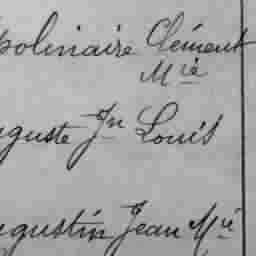 polinaire Clément
Mie
uguste Jn Louis
ugustin Jean Mie